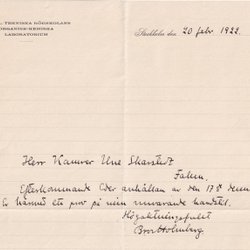 TEKNISKA HÖGSKOLANS
ORGANISK-KEMISKA
LABORATORIUM
Stockholm den 20 febr 1922.
Herr Kamrer Une
Falun.
Efterkommande Eder anhållan av den 17de dennes
härmed ett prov på mitt nuvarande
Högaktningsfullt
Holmberg